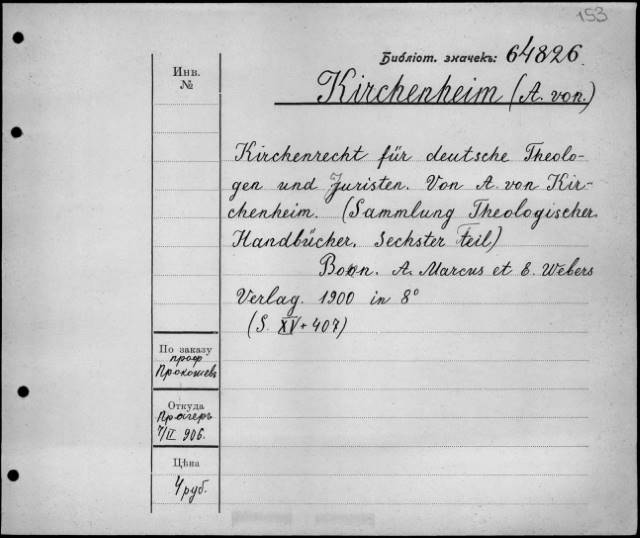 153
Библіот. значекъ: 64826.
Инв.
№
Kirchenheim (A. von.)
Kirchenrecht für deutsche Theolo-
gen und Juristen. Von A. von Kir-
chenheim. (Sammlung Theologischer
Handbücher. Sechster Teil)
Bonn. A. Marcus et E. Webers
Verlag. 1900 in 8°
(S. XV + 407)
По заказу
проф
Прокошев
Откуда
Прагеръ
7/II 906.
Цѣна
4 руб.